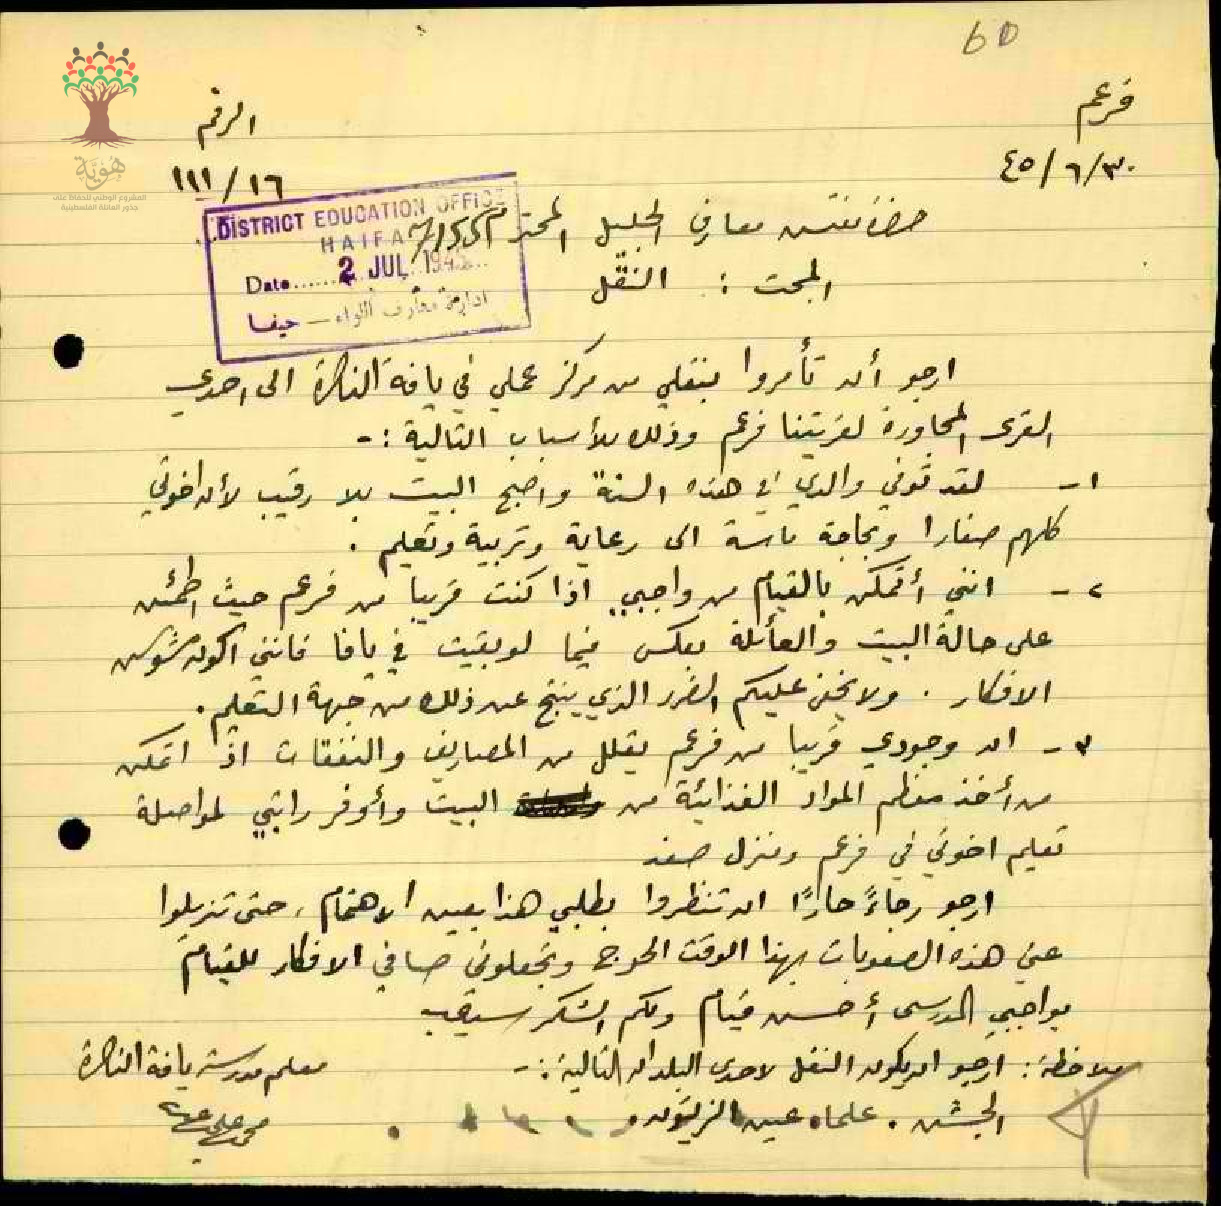 60
فرعم
الرقم
٤٥/٦/٣٠
١١١/١٦
هُويَّة
المشروع الوطني للحفاظ على
جذور العائلة الفلسطينية
DISTRICT EDUCATION OFFICE
HAIFA
Date ...... 2 JUL 1945
ادارة معارف اللواء — حيفا
حضرة مفتش معارف الجليل المحترم
المبحث : النقل
ارجو أن تأمروا بنقلي من مركز عملي في يافة الناصرة الى احدى
القرى المجاورة لقريتنا فرعم وذلك للأسباب التالية :-
١- لقد توفي والدي في هذه السنة واصبح البيت بلا رقيب لأن اخوتي
كلهم صغارا وبحاجة ماسة الى رعاية وتربية وتعليم .
٢- انني أتمكن بالقيام من واجبي اذا كنت قريبا من فرعم حيث اطمئن
على حالة البيت والعائلة بعكس فيما لو بقيت في يافا فانني اكون مشوش
الافكار . ولا يخفى عليكم الضرر الذي ينتج عن ذلك من جهة التعليم .
٣- ان وجودي قريبا من فرعم يقلل من المصاريف والنفقات اذ اتمكن
من أخذ معظم المواد الغذائية من البيت وأوفر راتبي لمواصلة
تعليم اخوتي في فرعم ومنزل صفد
ارجو رجاءً حارًا ان تنظروا بطلبي هذا بعين الاهتمام ، حتى تزيلوا
عني هذه الصعوبات بهذا الوقت الحرج وتجعلوني صافي الافكار للقيام
بواجبي المدرسى أحسن قيام ولكم الشكر سيدي
ملاحظة : ارجو ان يكون النقل لاحدى البلدان التالية :-
معلم مدرسة يافة الناصرة
الجش . علما . عين الزيتون